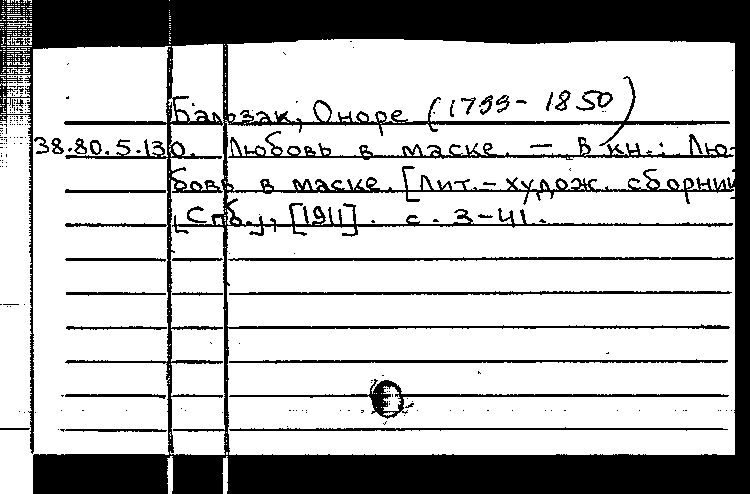 Бальзак, Оноре (1799-1850)
38.80.5.130. Любовь в маске. – В кн.: Лю-
бовь в маске. [Лит.-худож. сборник]
[Спб.], [1911]. с. 3-41.